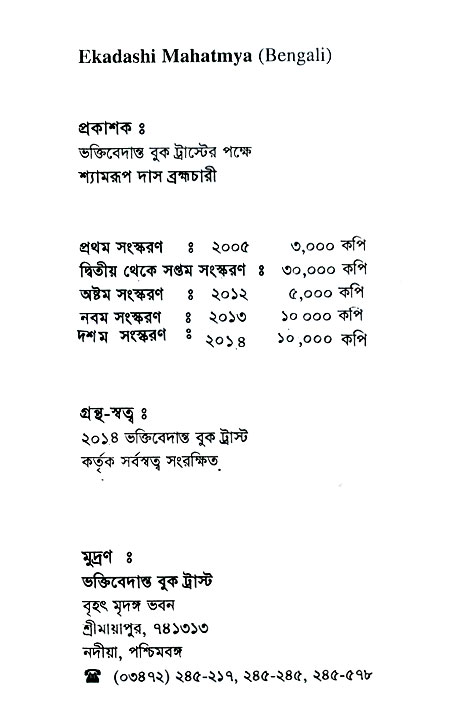 Ekadashi Mahatmya (Bengali)
প্রকাশক ঃ
ভক্তিবেদান্ত বুক ট্রাস্টের পক্ষে
শ্যামরূপ দাস ব্রহ্মচারী
প্রথম সংস্করণ ঃ ২০০৫ ৩,০০০ কপি
দ্বিতীয় থেকে সপ্তম সংস্করণ ঃ ৩০,০০০ কপি
অষ্টম সংস্করণ ঃ ২০১২ ৫,০০০ কপি
নবম সংস্করণ ঃ ২০১৩ ১০ ০০০ কপি
দশম সংস্করণ ঃ ২০১৪ ১০,০০০ কপি
গ্রন্থ-স্বত্ব ঃ
২০১৪ ভক্তিবেদান্ত বুক ট্রাস্ট
কর্তৃক সর্বস্বত্ব সংরক্ষিত
মুদ্রণ ঃ
ভক্তিবেদান্ত বুক ট্রাস্ট
বৃহৎ মৃদঙ্গ ভবন
শ্রীমায়াপুর, ৭৪১৩১৩
নদীয়া, পশ্চিমবঙ্গ
☎ (০৩৪৭২) ২৪৫-২১৭, ২৪৫-২৪৫, ২৪৫-৫৭৮